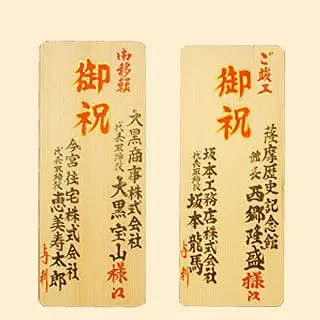 御移転
御祝
大黒商事株式会社
代表取締役 大黒宝山様江
今宮住宅株式会社
代表取締役 恵美寿太郎
与利
ご竣工
御祝
薩摩歴史記念館
館長 西郷隆盛様江
坂本工務店株式会社
代表取締役 坂本龍馬
与利